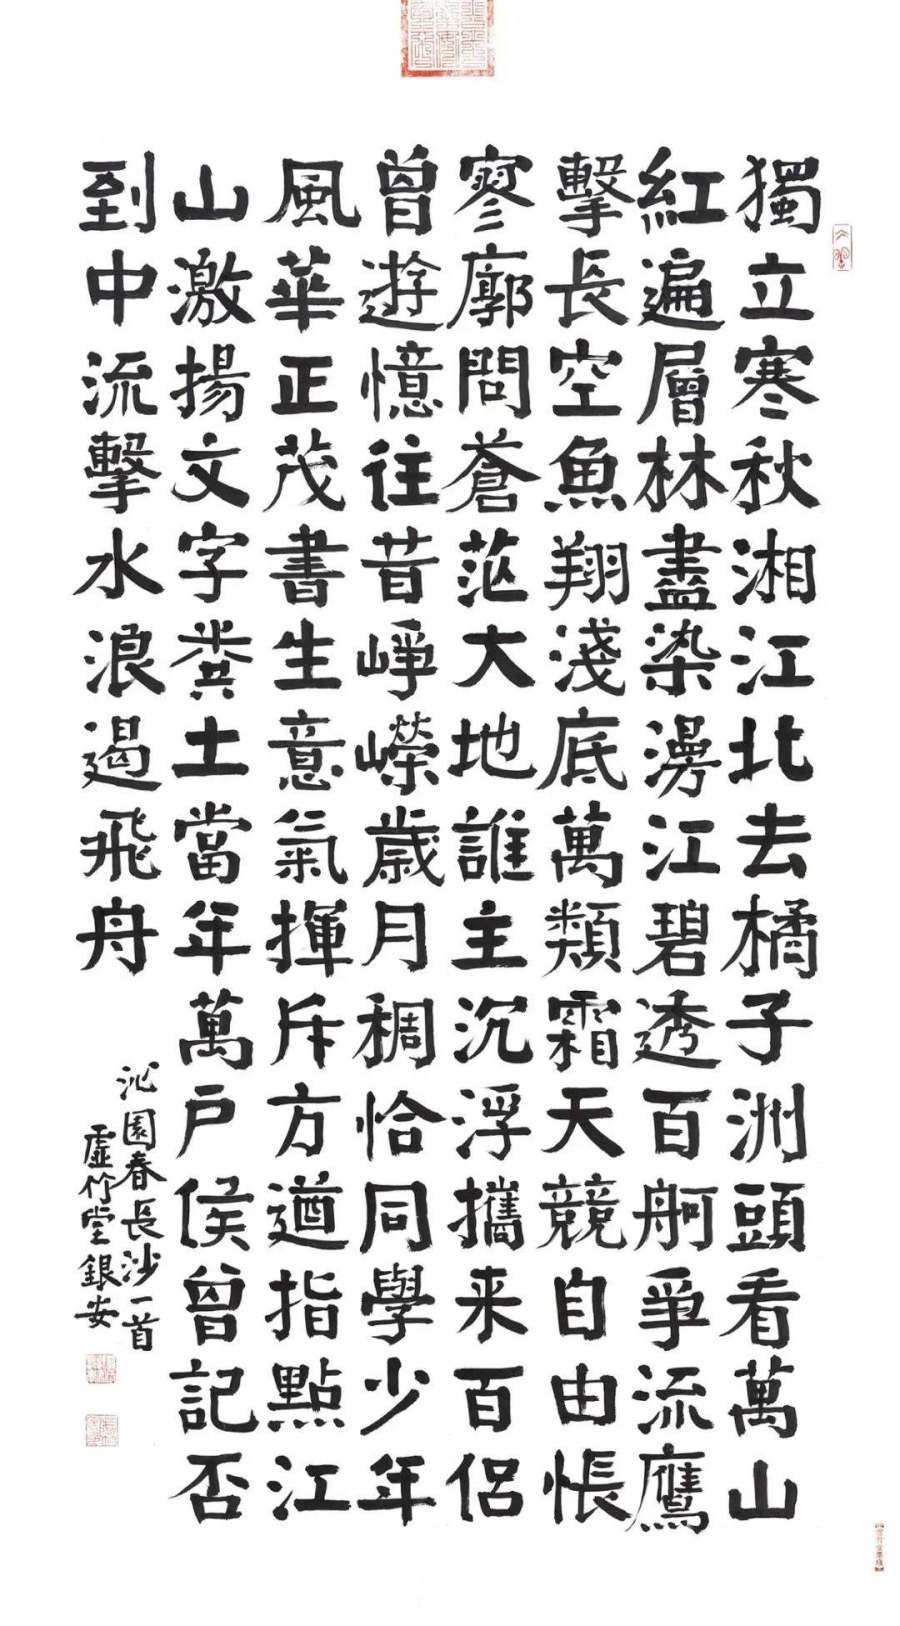 獨立寒秋湘江北去橘子洲頭看萬山
紅遍層林盡染漫江碧透百舸爭流鷹
擊長空魚翔淺底萬類霜天競自由悵
寥廓問蒼茫大地誰主沉浮攜来百侶
曾遊憶往昔崢嶸歲月稠恰同學少年
風華正茂書生意氣揮斥方遒指點江
山激揚文字糞土當年萬戶侯曾記否
到中流擊水浪遏飛舟
沁園春長沙一首
虛竹堂銀安